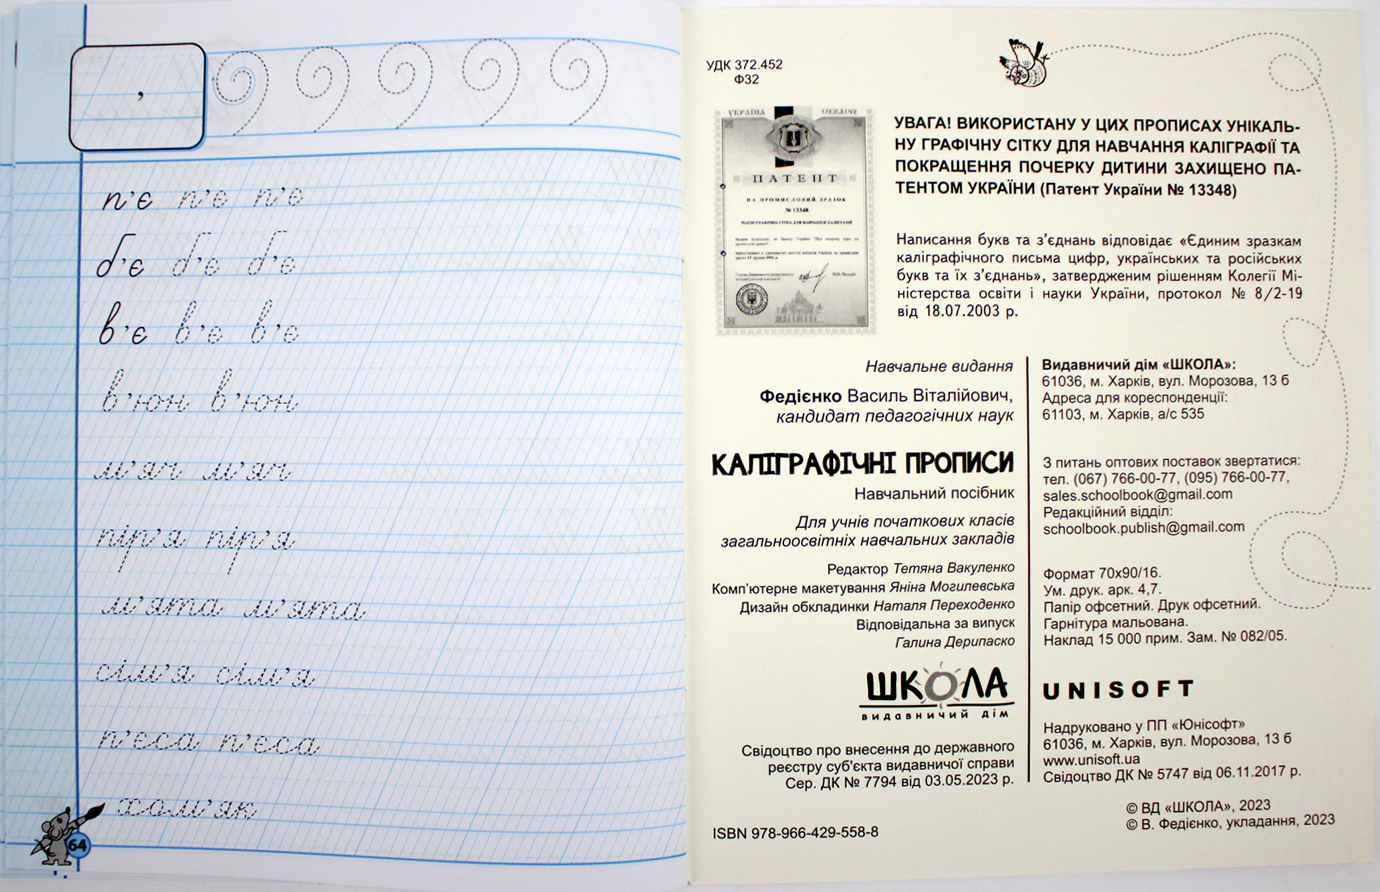 ,
п'є п'є п'є
б'є б'є б'є
в'є в'є в'є
в'юн в'юн
м'яч м'яч
пір'я пір'я
м'ята м'ята
сім'я сім'я
п'єса п'єса
хом'як
64
УДК 372.452
Ф32
УКРАЇНА UKRAINE
ПАТЕНТ
НА ПРОМИСЛОВИЙ ЗРАЗОК
№ 13348
УВАГА! ВИКОРИСТАНУ У ЦИХ ПРОПИСАХ УНІКАЛЬ-
НУ ГРАФІЧНУ СІТКУ ДЛЯ НАВЧАННЯ КАЛІГРАФІЇ ТА
ПОКРАЩЕННЯ ПОЧЕРКУ ДИТИНИ ЗАХИЩЕНО ПА-
ТЕНТОМ УКРАЇНИ (Патент України № 13348)
Написання букв та з’єднань відповідає «Єдиним зразкам
каліграфічного письма цифр, українських та російських
букв та їх з’єднань», затвердженим рішенням Колегії Мі-
ністерства освіти і науки України, протокол № 8/2-19
від 18.07.2003 р.
Навчальне видання
Федієнко Василь Віталійович,
кандидат педагогічних наук
КАЛІГРАФІЧНІ ПРОПИСИ
Навчальний посібник
Для учнів початкових класів
загальноосвітніх навчальних закладів
Редактор Тетяна Вакуленко
Комп’ютерне макетування Яніна Могилевська
Дизайн обкладинки Наталя Переходенко
Відповідальна за випуск
Галина Дерипаско
ШКОЛА
видавничий дім
Свідоцтво про внесення до державного
реєстру суб'єкта видавничої справи
Сер. ДК № 7794 від 03.05.2023 р.
ISBN 978-966-429-558-8
Видавничий дім «ШКОЛА»:
61036, м. Харків, вул. Морозова, 13 б
Адреса для кореспонденції:
61103, м. Харків, а/с 535
З питань оптових поставок звертатися:
тел. (067) 766-00-77, (095) 766-00-77,
sales.schoolbook@gmail.com
Редакційний відділ:
schoolbook.publish@gmail.com
Формат 70х90/16.
Ум. друк. арк. 4,7.
Папір офсетний. Друк офсетний.
Гарнітура мальована.
Наклад 15 000 прим. Зам. № 082/05.
UNISOFT
Надруковано у ПП «Юнісофт»
61036, м. Харків, вул. Морозова, 13 б
www.unisoft.ua
Свідоцтво ДК № 5747 від 06.11.2017 р.
© ВД «ШКОЛА», 2023
© В. Федієнко, укладання, 2023